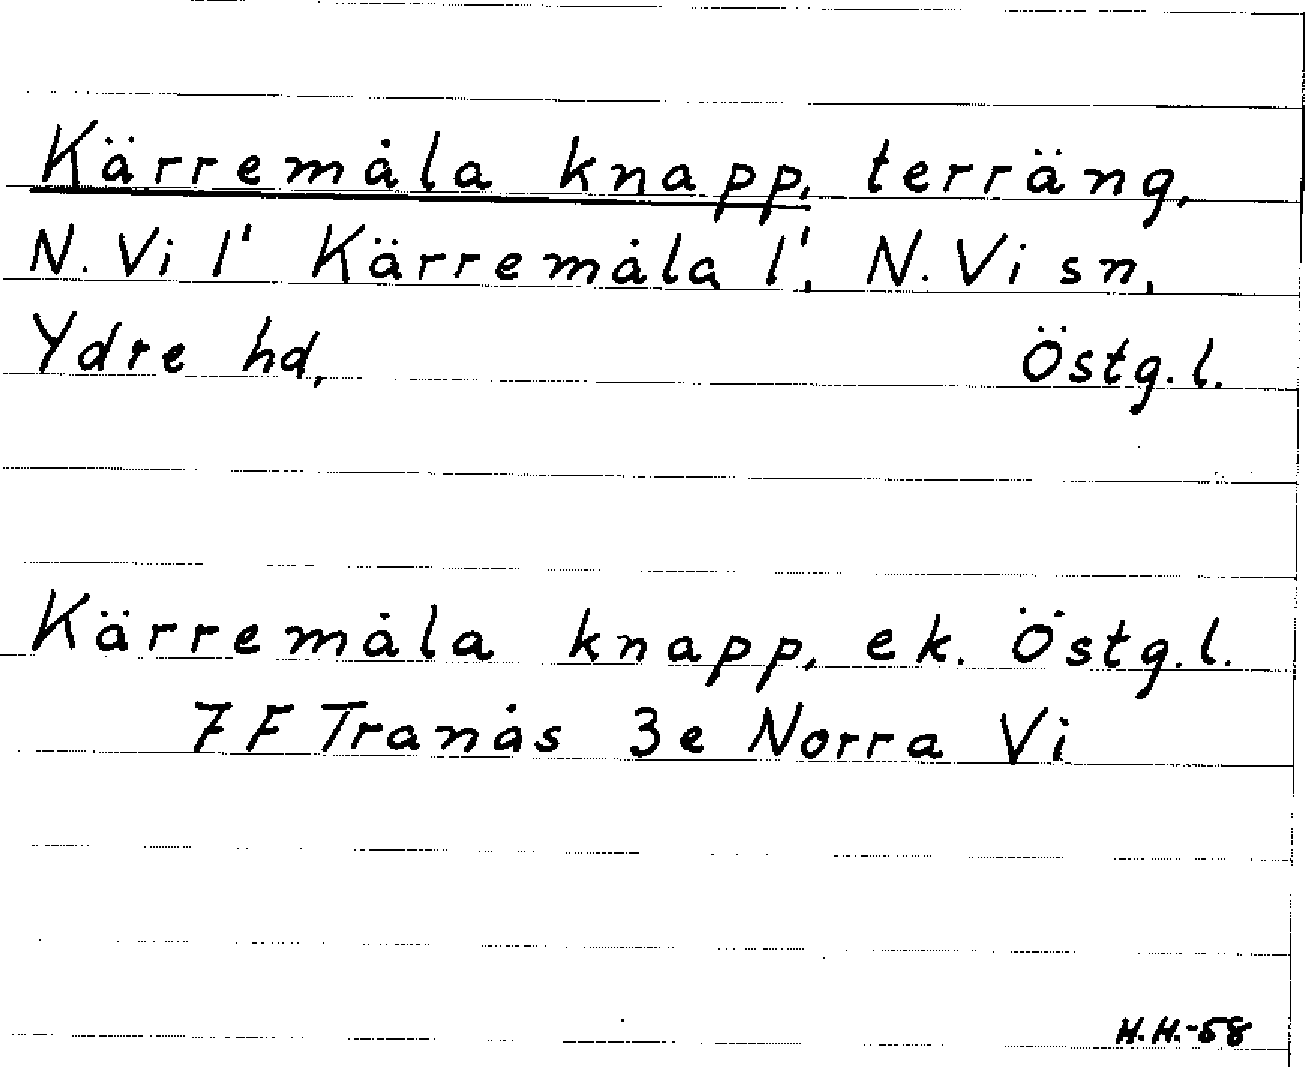 Kärremåla knapp, terräng,
N. Vi 1' Kärremåla 1', N. Vi sn,
Ydre hd, Östg. l.
Kärremåla knapp, ek. Östg. l.
7 F Tranås 3e Norra Vi
H.H.-58